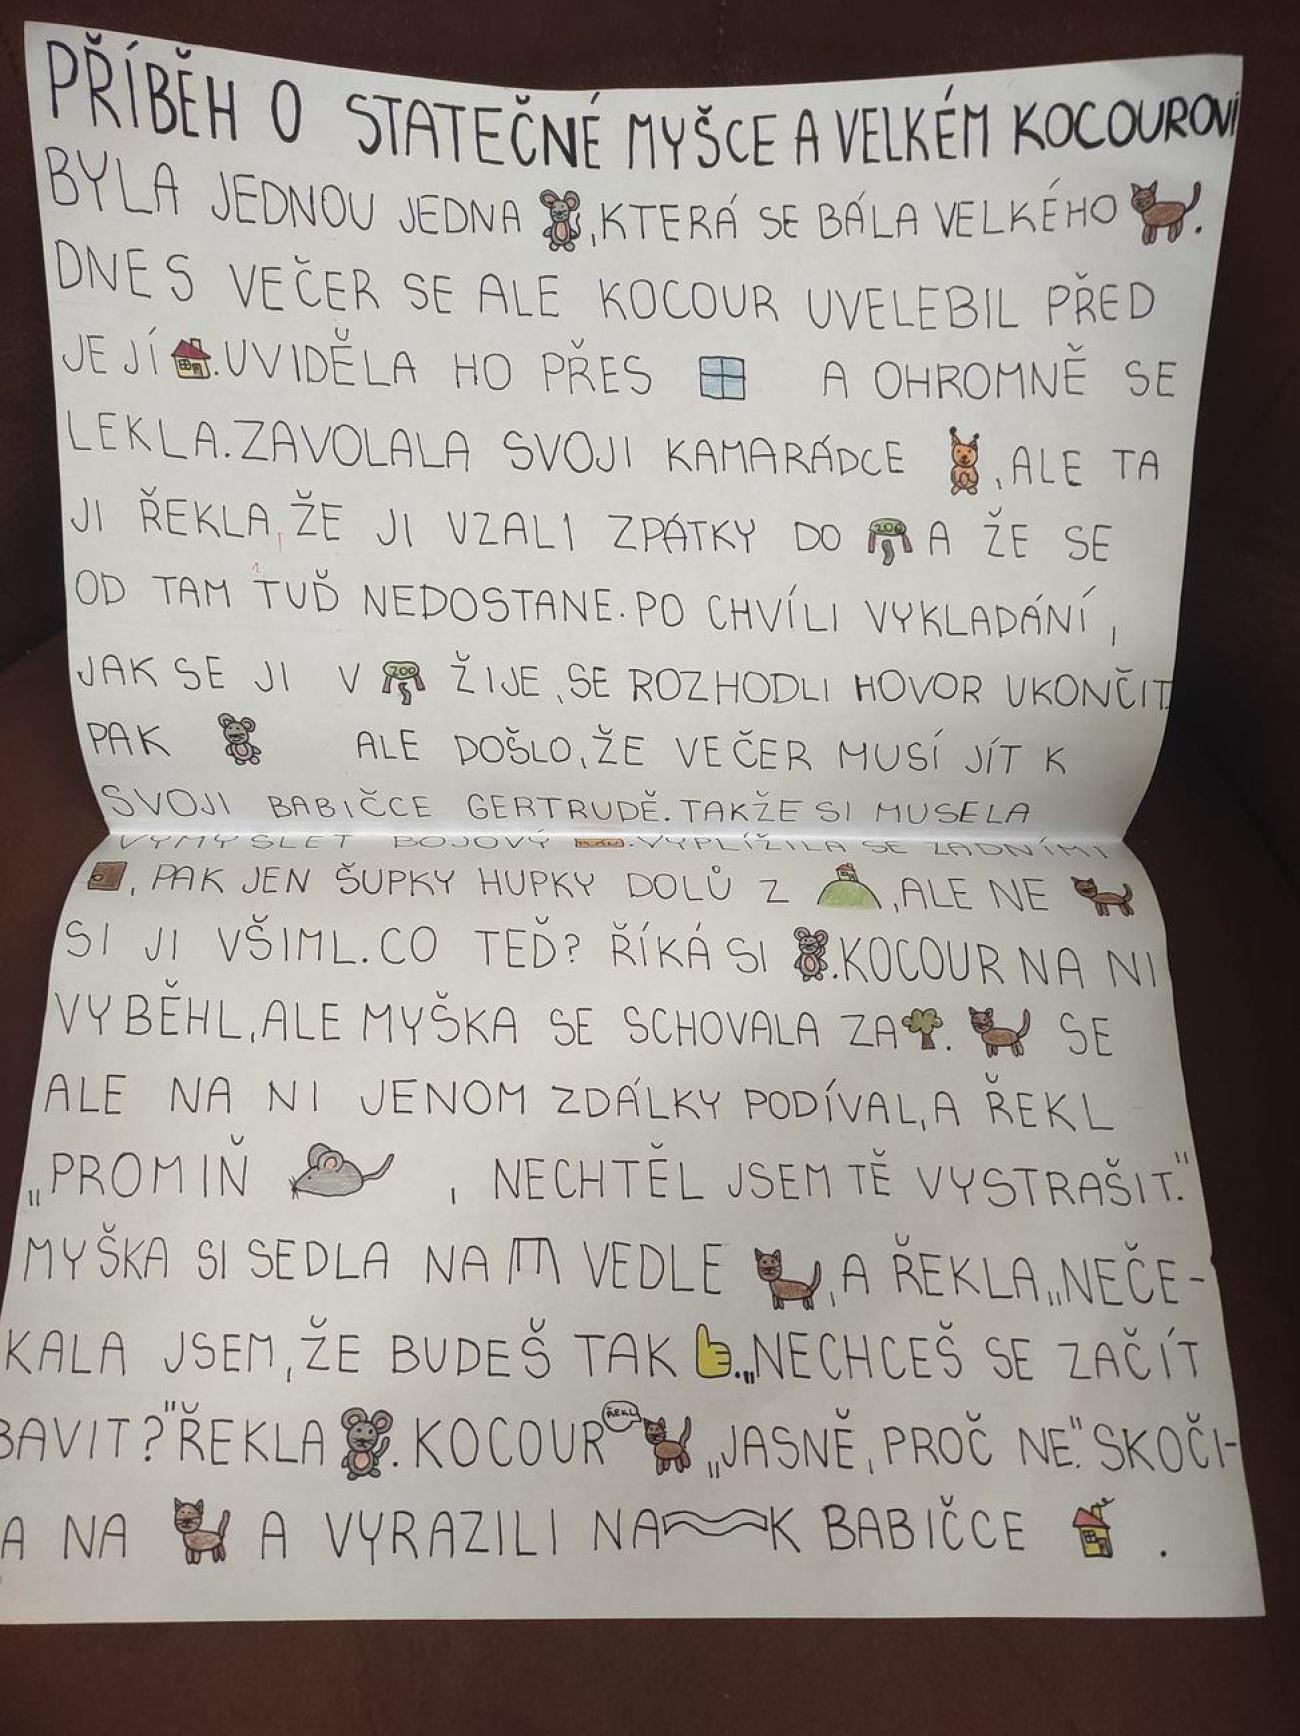 PŘÍBĚH O STATEČNÉ MYŠCE A VELKÉM KOCOUROVI
BYLA JEDNOU JEDNA ,KTERÁ SE BÁLA VELKÉHO .
DNES VEČER SE ALE KOCOUR UVELEBIL PŘED
JEJÍ .UVIDĚLA HO PŘES A OHROMNĚ SE
LEKLA.ZAVOLALA SVOJI KAMARÁDCE ,ALE TA
JI ŘEKLA,ŽE JI VZALI ZPÁTKY DO ZOO A ŽE SE
OD TAM TUĎ NEDOSTANE.PO CHVÍLI VYKLADÁNÍ,
JAK SE JI V ZOO ŽIJE,SE ROZHODLI HOVOR UKONČIT.
PAK ALE DOŠLO,ŽE VEČER MUSÍ JÍT K
SVOJI BABIČCE GERTRUDĚ.TAKŽE SI MUSELA
VYMYSLET BOJOVÝ PLÁN.VYPLÍŽILA SE ZADNÍMI
, PAK JEN ŠUPKY HUPKY DOLŮ Z ,ALE NE
SI JI VŠIML.CO TEĎ? ŘÍKÁ SI .KOCOUR NA NI
VYBĚHL,ALE MYŠKA SE SCHOVALA ZA . SE
ALE NA NI JENOM ZDÁLKY PODÍVAL,A ŘEKL
„PROMIŇ , NECHTĚL JSEM TĚ VYSTRAŠIT."
MYŠKA SI SEDLA NA VEDLE ,A ŘEKLA„NEČE-
KALA JSEM,ŽE BUDEŠ TAK .„NECHCEŠ SE ZAČÍT
BAVIT?"ŘEKLA .KOCOUR ŘEKL „JASNĚ,PROČ NE."SKOČI-
A NA A VYRAZILI NA K BABIČCE .